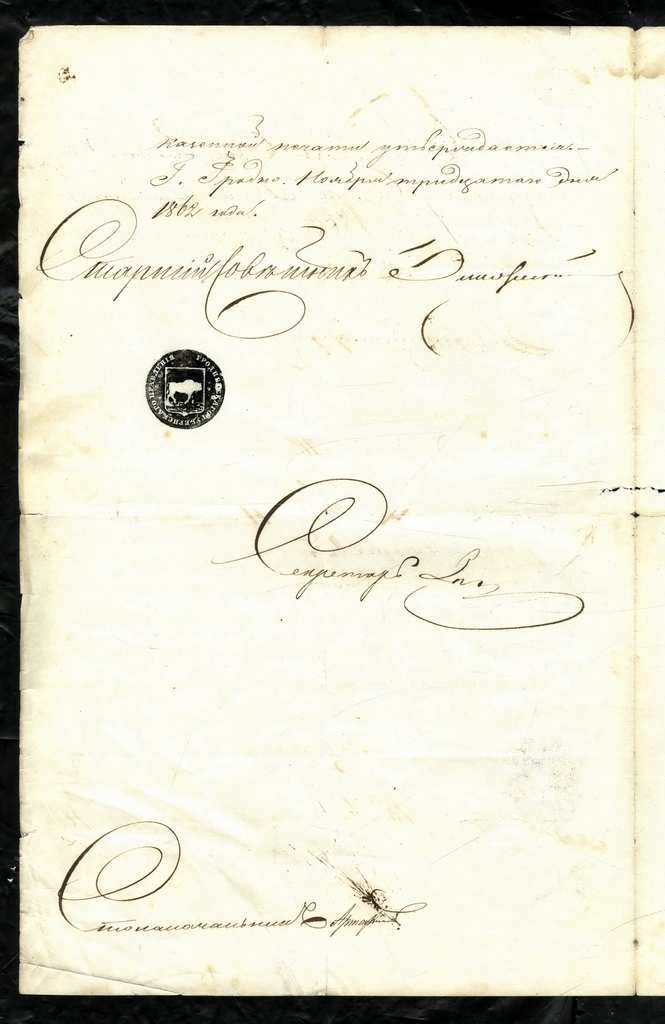 казенной печати утверждается.–
Г. Гродно. Ноября тридцатого дня
1862 года.
Старший Совѣтникъ
ГРОДНЕНСКАГО ГУБЕРНСКАГО ПРАВЛЕНІЯ
Секретарь
Столоначальник